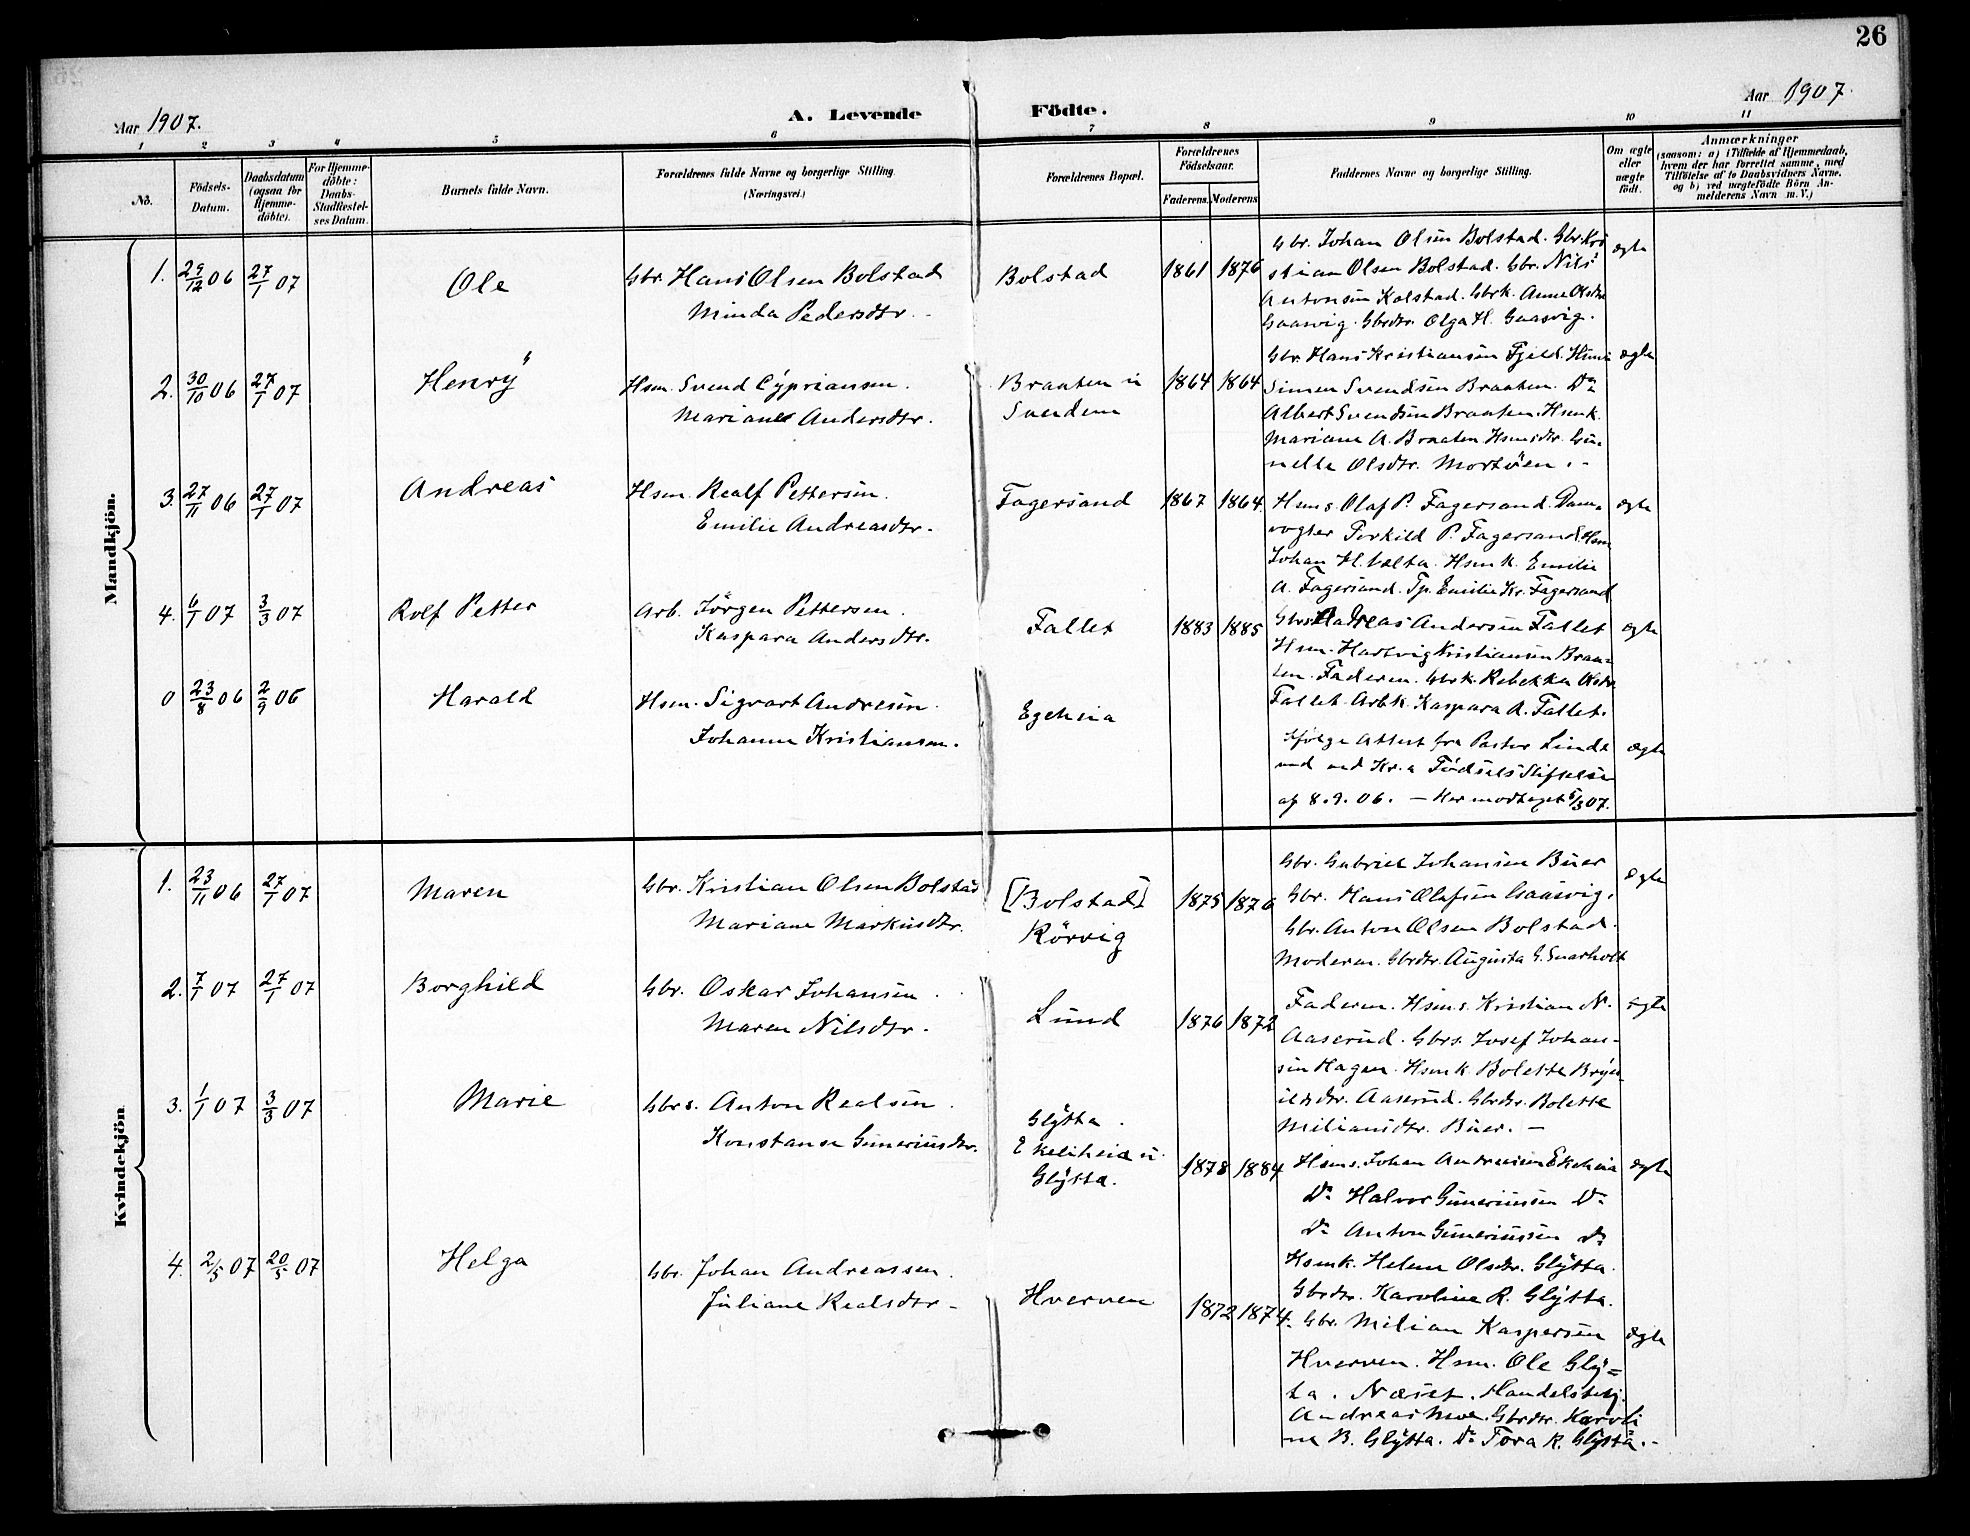 26
Aar 1907.
A. Levende Födte.
Aar 1907.
1 2 3 4 5 6 7 8 9 10 11
No.
Födsels-
Datum.
Daabsdatum
(ogsaa for
Hjemme-
döbte).
For Hjemme-
döbte:
Daabs-
Stadfæstel-
ses Datum.
Barnets fulde Navn.
Forældrenes fulde Navne og borgerlige Stilling.
(Næringsvei.)
Forældrenes Bopæl.
Forældrenes
Födselsaar.
Faderens. Moderens
Faddernes Navne og borgerlige Stilling.
Om ægte
eller
uægte
födt.
Anmærkninger
(saasom: a) i Tilfælde af Hjemmedaab,
hvem der har forrettet samme, med
Tilföielse af to Daabsvidners Navne,
og b) ved uægtefödte Börn An-
melderens Navn m. V.)
Mandkjön.
1. 29/12 06 27/1 07 Ole
Gbr. Hans Olsen Bolstad
Minda Pedersdtr.
Bolstad 1861 1876
Gbr. Johan Olsen Bolstad. Gbr. Kri
stian Olsen Bolstad. Gbr. Nils
Antonsen Kolstad. Gbrk. Anne Olsdtr
Gaasvig. Gbrdtr. Olga H. Gaasvig.
ægte
2. 30/10 06 27/1 07 Henry
Hsm. Svend Cypriansen.
Mariane Andersdtr.
Braaten u
Svendem
1864 1864
Gbr. Hans Kristiansen Fjeld. Hsms
Simen Svendsen Braaten. Do
Albert Svendsen Braaten. Hsmk.
Mariane A. Braaten. Hsmsdtr. Gu-
nelle Olsdtr. Mortöen.-
ægte
3. 27/11 06 27/1 07 Andreas
Hsm. Realf Pettersen.
Emilie Andreasdtr.
Fagersand 1867 1864.
Hsms. Olaf P. Fagersand. Dam-
vogter Torkild P. Fagersand. Hsm
Johan H. Valta. Hsmk. Emilie
A. Fagersand. Tp. Emilie Kr. Fagersand
ægte
4. 6/1 07 3/3 07 Rolf Petter
Arb. Jörgen Pettersen.
Kaspara Andersdtr.
Fallet 1883 1885
Gbrs. Andreas Andersen Fallet
Hsm. Hartvig Kristiansen Braa-
ten. Faderen. Gbrk. Rebekka Olsdtr
Fallet. Arbk. Kaspara A. Fallet.
ægte
0 23/8 06 2/9 06 Harald
Hsm. Sigvart Andresen.
Johanne Kristiansen.
Egeheia
Ifölge Attest fra Pastor Linde
ved Kr.a FödselsStiftelse
af 8.9.06. — Her modtaget 5/3 07.
ægte
Kvindekjön
1. 23/11 06 27/1 07 Maren
Gbr. Kristian Olsen Bolstad
Mariane Markusdtr.
[Bolstad]
Körvig
1875 1876
Gbr. Gabriel Johansen Buer
Gbr. Hans Olafsen Gaasvig.
Gbr. Anton Olsen Bolstad.
Moderen. Gbrdtr. Augusta G. Snarholt
ægte
2. 7/1 07 27/1 07 Borghild
Gbr. Oskar Johansen.
Maren Nilsdtr.
Lund 1876 1872
Faderen. Hsms. Kristian N.
Aaserud. Gbrs. Josef Johan-
sen Hagen. Hsmk. Bolette Bryn-
ildsdtr. Aaserud. Gbrdtr. Bolette
Miliansdtr. Buer. —
ægte
3. 1/1 07 3/3 07 Marie
Gbrs. Anton Realsen.
Konstanse Guneriusdtr.
Glytta.
Ekeliheia u.
Glytta.
1878 1884
Hsms. Johan Andreasen Ekeheia
Do Halvor Guneriussen Do
Do Anton Guneriussen Do
Hsmk. Helene Olsdtr. Glytta.
Gbrdtr. Karoline R. Glytta.
ægte
4. 2/5 07 20/5 07 Helga
Gbr. Johan Andreassen.
Juliane Realsdtr.-
Hverven 1872 1874.
Gbr. Milian Kaspersen
Hverven. Hsm. Ole Gly=
ta. Næset. Handelsbetj.
Andreas Moe. Gbrdtr. Karoli
ne B. Glytta. Do Tora R. Glytta.-
ægte